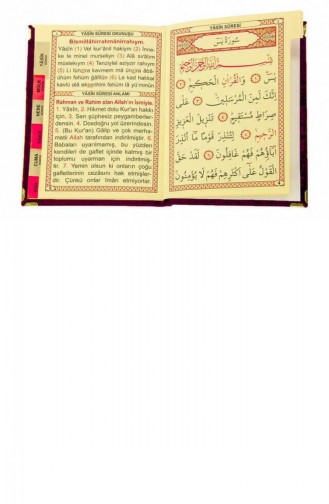 YÂSİN SÛRESİ OKUNUŞU
Bismillâhirrahmânirrahıym.
Yâsîn (1) Vel kur'ânil hakiym (2) İnne-
ke le minel murseliyn (3) Alâ sırâtim
müstekıym (4) Tenziylel aziyzir rahıym
(5) Li tünzira kavmem mâ ünzira âbâ-
ühüm fehüm ğâfilûn (6) Le kad hakkal
kavlü alâ ekserihim fehüm lâ yü'minûn
YÂSİN SÛRESİ ANLAMI
Rahman ve Rahim olan Allah'ın ismiyle.
1. Yâsîn, 2. Hikmet dolu Kur'an hakkı
için, 3. Sen şüphesiz peygamberler-
densin. 4. Dosdoğru yol üzerindesin.
5. (Bu Kur'an) Gâlip ve çok merha-
metli Allah tarafından indirilmiştir. 6.
Babaları uyarılmamış, bu yüzden
kendileri de gaflet içinde kalmış bir
toplumu uyarman için indirilmiş-
tir. 7. Yemin olsun ki onların çoğu
gafletlerinin cezâsını hak etmişler-
dir. Çünkü onlar îmân etmiyorlar.
YÂSİN
MÜLK
NEBE
CUMA
YÂSİN SÛRESİ
سُورَةُ يٰسٓ
بِسْمِ اللّٰهِ الرَّحْمٰنِ الرَّحِيمِ
يٰسٓ ﴿١﴾ وَالْقُرْاٰنِ الْحَكِيمِ ﴿٢﴾
اِنَّكَ لَمِنَ الْمُرْسَلِينَ ﴿٣﴾ عَلٰى
صِرَاطٍ مُسْتَقِيمٍ ﴿٤﴾ تَنْزِيلَ الْعَزِيزِ
الرَّحِيمِ ﴿٥﴾ لِتُنْذِرَ قَوْمًا مَٓا اُنْذِرَ
اٰبَٓاؤُهُمْ فَهُمْ غَافِلُونَ ﴿٦﴾ لَقَدْ حَقَّ
الْقَوْلُ عَلٰٓى اَكْثَرِهِمْ فَهُمْ لَا يُؤْمِنُونَ